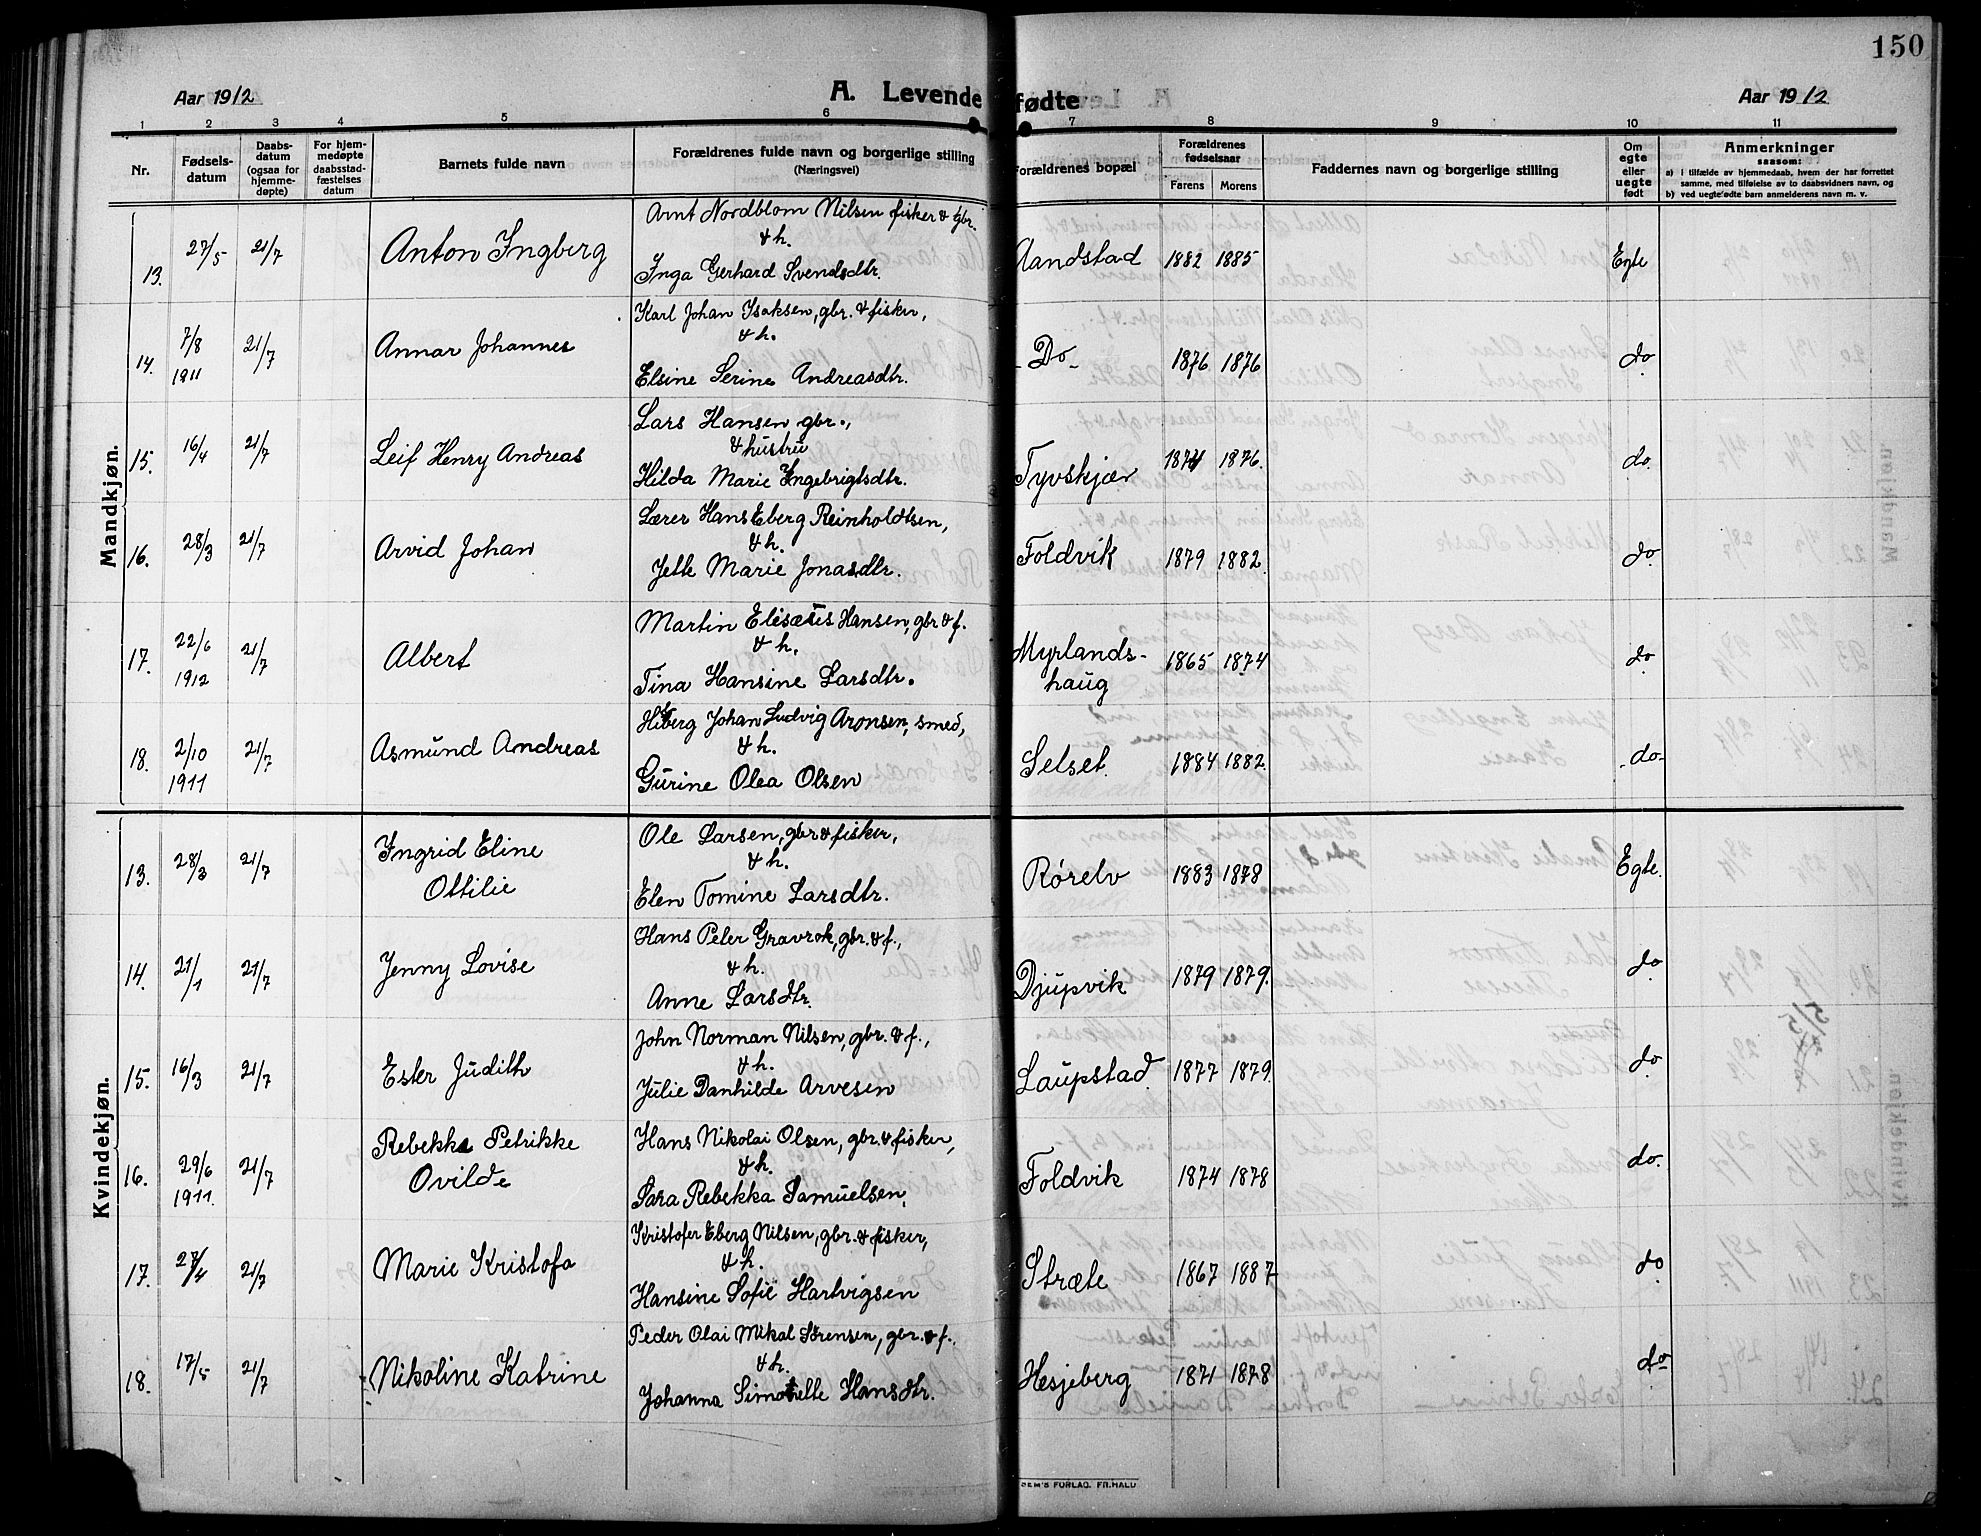 150
Aar 1912
A. Levende fødte
Aar 1912
1 2 3 4 5 6 7 8 9 10 11
Nr.
Fødsels-
datum
Daabs-
datum
(ogsaa for
hjemme-
døpte)
For hjem-
medøpte
daabsstad-
fæstelses
datum
Barnets fulde navn
Forældrenes fulde navn og borgerlige stilling
(Næringsvei)
Forældrenes bopæl
Forældrenes
fødselsaar
Farens
Morens
Faddernes navn og borgerlige stilling
Om
egte
eller
uegte
født
Anmerkninger
saasom:
a) i tilfælde av hjemmedaab, hvem der har forrettet
samme, med tilføielse av to daabsvidners navn, og
b) ved uegte fødte barn anmelderens navn m. v.
Mandkjøn.
Arnt Nordblom Nilsen fisker & gbr.
& h.
13. 27/5 21/7 Anton Ingberg Aandstad 1882 1885 Egte
Inga Gerhard Svendsdtr.
Karl Johan Isaksen, gbr. & fisker,
& h.
14. 7/8 1911 21/7 Annar Johannes - Do - 1876 1876 do
Elsine Serine Andreasdtr.
Lars Hansen gbr.,
& hustru
15. 16/4 21/7 Leif Henry Andreas Tyvskjær 1874 1876. do.
Hilda Marie Ingebrigtsdtr.
Lærer Hans Eberg Reinholdtsen,
& h.
16. 28/3 21/7 Arvid Johan Foldvik 1879 1882. do.
Jette Marie Jonasdtr.
Martin Elisæus Hansen, gbr & f.
& h.
17. 22/6 1912 21/7 Albert Myrlands-
haug 1865 1874 do
Tina Hansine Larsdtr.
Hiberg Johan Ludvig Aronsen, smed,
& h.
18. 2/10 1911 21/7 Asmund Andreas Selset. 1884 1882. - do -
Gurine Olea Olsen
Kvindekjøn.
Ole Larsen, gbr & fisker,
& h.
13. 28/3 21/7 Ingrid Eline
Ottilie Rørelv 1883 1878 Egte.
Elen Tomine Larsdtr.
Hans Peter Gravrok, gbr. & f.,
& h.
14. 21/1 21/7 Jenny Lovise Djupvik 1879 1879. do
Anne Larsdtr.
John Norman Nilsen, gbr. & f.,
& h.
15. 16/3 21/7 Ester Judith Laupstad. 1877 1879. do
Julie Danhilde Arvesen
Hans Nikolai Olsen, gbr. & fisker,
& h.
16. 29/6 1911. 21/7 Rebekka Petrikke
Ovilde Foldvik 1874 1878 do.
Sara Rebekka Samuelsen,
Kristofer Eberg Nilsen, gbr. & fisker,
& h.
17. 27/4 21/7 Marie Kristofa Stræte 1867 1887 do
Hansine Sofie Hartvigsen
Peder Olai Mikal Sørensen, gbr. & f.
& h.
18. 17/5 21/7 Nikoline Katrine Hesjeberg 1871 1878 do
Johanna Simonette Hansdtr.
FORLAG. FR.HALD